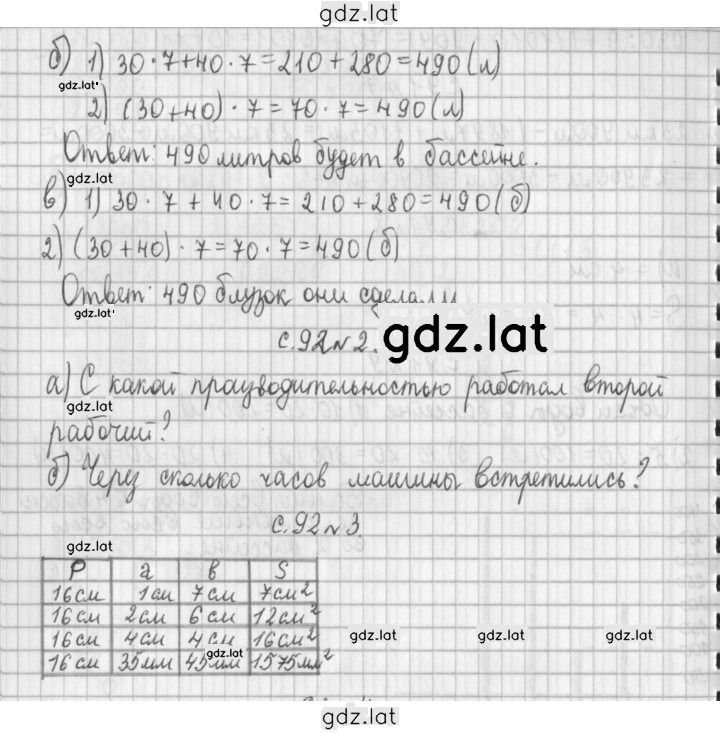 gdz.lat
б) 1) 30 · 7 + 40 · 7 = 210 + 280 = 490 (л)
gdz.lat
2) (30 + 40) · 7 = 70 · 7 = 490 (л)
Ответ: 490 литров будет в бассейне.
gdz.lat
в) 1) 30 · 7 + 40 · 7 = 210 + 280 = 490 (б)
2) (30 + 40) · 7 = 70 · 7 = 490 (б)
Ответ: 490 блузок они сделали
gdz.lat
с. 92 № 2.
gdz.lat
а) С какой производительностью работал второй
gdz.lat
рабочий?
б) Через сколько часов машины встретились?
с. 92 № 3.
gdz.lat
P a в S
16 см 1 см 7 см 7 см²
16 см 2 см 6 см 12 см²
16 см 4 см 4 см 16 см²
gdz.lat gdz.lat gdz.lat
gdz.lat
16 см 35 мм 45 мм 1575 мм²
gdz.lat